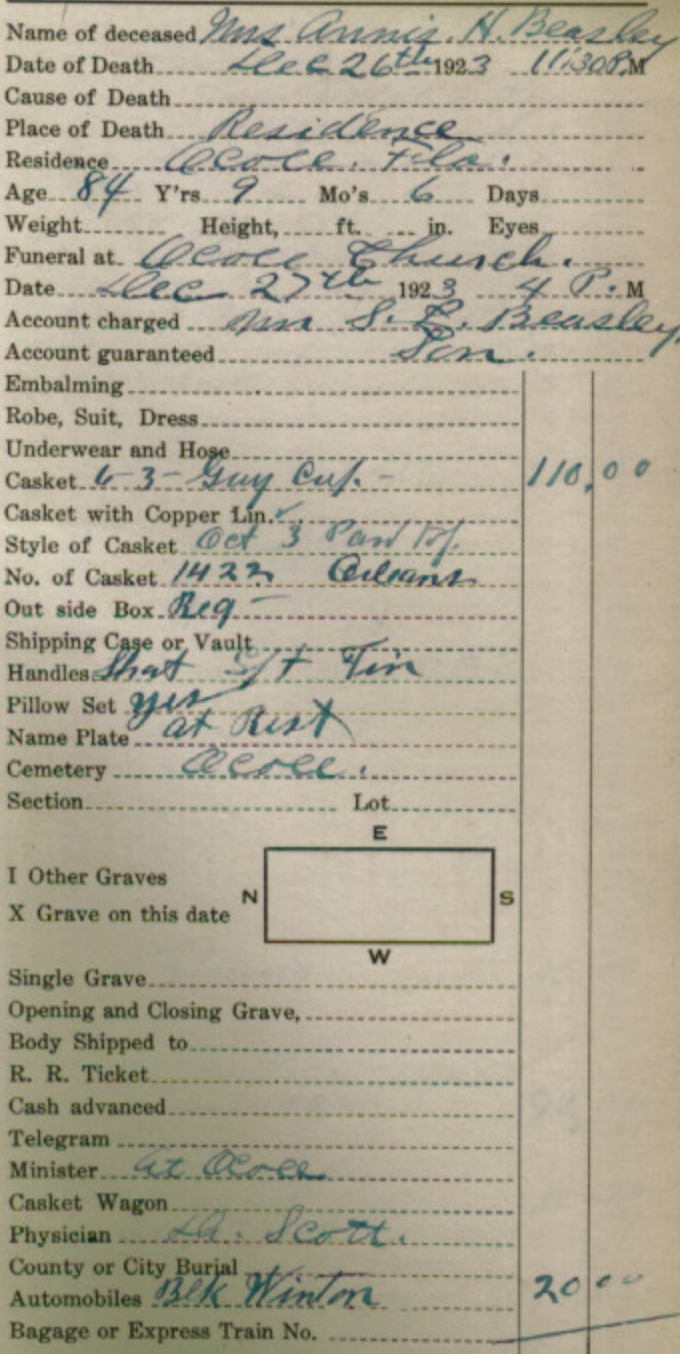 Name of deceased Mrs Annis. H. Beasley
Date of Death Dec 26th 1923 11:30 P.M
Cause of Death
Place of Death Residence
Residence Ocoee. Fla.
Age 84 Y'rs 9 Mo's 6 Days
Weight Height, ft. in. Eyes
Funeral at Ocoee Church.
Date Dec 27th 1923 4 P. M
Account charged Mr S. E. Beasley
Account guaranteed Son.
Embalming
Robe, Suit, Dress
Underwear and Hose
Casket 6-3- 110.00
Casket with Copper Lin.
Style of Casket Oct 3
No. of Casket 1422 Orleans
Out side Box Reg -
Shipping Case or Vault
Handles Tin
Pillow Set yes
Name Plate at Rest
Cemetery Ocoee.
Section Lot
E
I Other Graves
N S
X Grave on this date
W
Single Grave
Opening and Closing Grave,
Body Shipped to
R. R. Ticket
Cash advanced
Telegram
Minister at Ocoee
Casket Wagon
Physician Dr. Scott.
County or City Burial
Automobiles Blk Winton 20 00
Bagage or Express Train No.